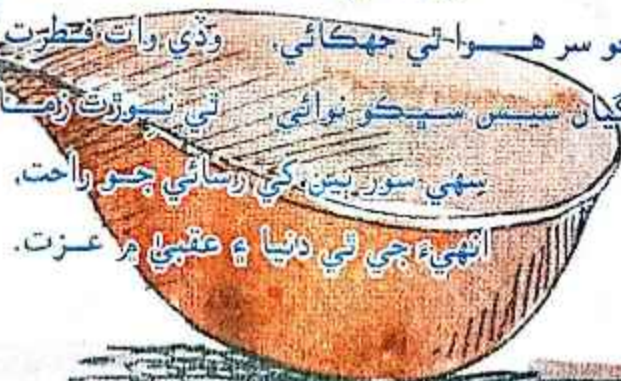 سر هوا ٿي جهڪائي، وڏي وات فطرت
سيس سڀڪو نوائي ٿي نوڙت
سهي سور ٻين کي رسائي جو راحت.
انهيءَ جي ٿي دنيا ۽ عقبيٰ ۾ عزت.